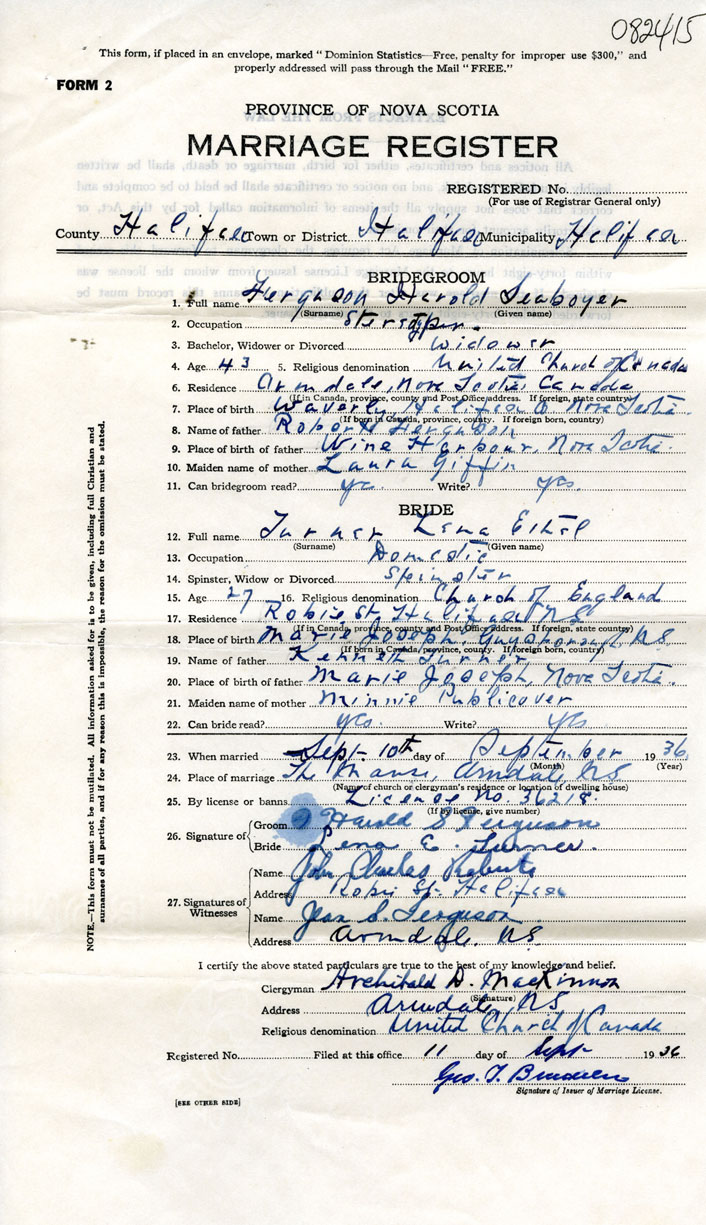 082415
This form, if placed in an envelope, marked "Dominion Statistics—Free, penalty for improper use $300," and
properly addressed will pass through the Mail "FREE."
FORM 2
PROVINCE OF NOVA SCOTIA
MARRIAGE REGISTER
REGISTERED No.
(For use of Registrar General only)
County Halifax Town or District Halifax Municipality Halifax
BRIDEGROOM
1. Full name Ferguson Harold Seaboyer
(Surname) (Given name)
2. Occupation
3. Bachelor, Widower or Divorced Widower
4. Age 43 5. Religious denomination United Church of Canada
6. Residence Armdale, Nova Scotia, Canada
(If in Canada, province, county and Post Office address. If foreign, state country)
7. Place of birth Waverly, Halifax Co Nova Scotia.
(If born in Canada, province, county. If foreign born, country)
8. Name of father Robert Ferguson
9. Place of birth of father Wine Harbour, Nova Scotia.
10. Maiden name of mother Laura Giffin
11. Can bridegroom read? yes Write? yes.
BRIDE
12. Full name Turner Lena Ethel
(Surname) (Given name)
13. Occupation Domestic
14. Spinster, Widow or Divorced Spinster
15. Age 27 16. Religious denomination Church of England
17. Residence Robie St. Halifax NS
(If in Canada, province, county and Post Office address. If foreign, state country)
18. Place of birth Marie Joseph, Guysborough, NS
(If born in Canada, province, county. If foreign born, country)
19. Name of father Kenneth Turner
20. Place of birth of father Marie Joseph, Nova Scotia.
21. Maiden name of mother Minnie Publicover
22. Can bride read? yes. Write? yes
23. When married Sept- 10th day of September 1936
(Month) (Year)
24. Place of marriage The Manse, Armdale, NS
(Name of church or clergyman's residence or location of dwelling house)
25. By license or banns License No. 36218.
(If by license, give number)
26. Signature of
Groom Harold S Ferguson
Bride Lena E. Turner.
27. Signatures of Witnesses
Name John Charles Roberts
Address Robie St. Halifax
Name Jean S. Ferguson
Address Armdale, NS
I certify the above stated particulars are true to the best of my knowledge and belief.
Clergyman Archibald D. MacKinnon
(Signature)
Address Armdale, NS
Religious denomination United Church of Canada
Registered No. Filed at this office 11 day of Sept 1936
Geo. T.
Signature of Issuer of Marriage License.
[SEE OTHER SIDE]
NOTE.—This form must not be mutilated. All information asked for is to be given, including full Christian and
surnames of all parties, and if for any reason this is impossible, the reason for the omission must be stated.